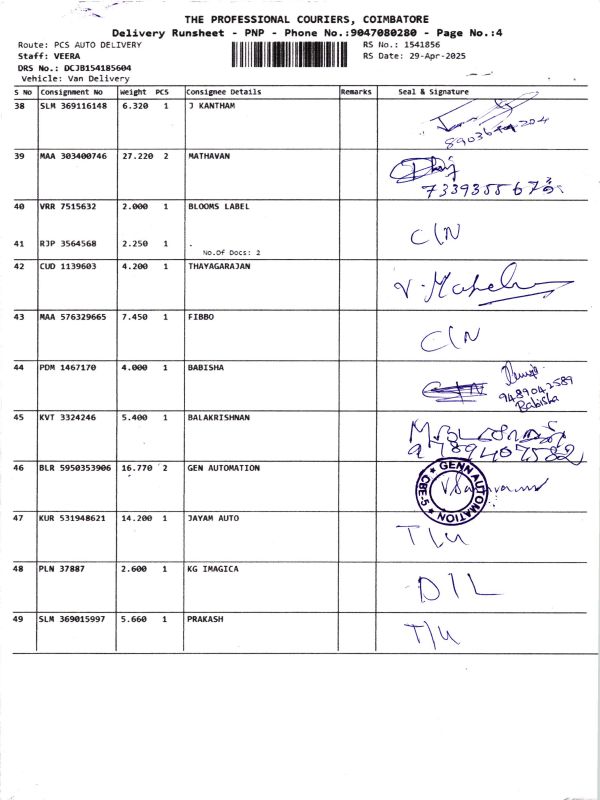 THE PROFESSIONAL COURIERS, COIMBATORE
Delivery Runsheet - PNP - Phone No.:9047080280 - Page No.:4
Route: PCS AUTO DELIVERY RS No.: 1541856
Staff: VEERA RS Date: 29-Apr-2025
DRS No.: DCJB154185604
Vehicle: Van Delivery
S NO Consignment No Weight PCS Consignee Details Remarks Seal & Signature
38 SLM 369116148 6.320 1 J KANTHAM
39 MAA 303400746 27.220 2 MATHAVAN
40 VRR 7515632 2.000 1 BLOOMS LABEL
41 RJP 3564568 2.250 1 . C/N
No.Of Docs: 2
42 CUD 1139603 4.200 1 THAYAGARAJAN
43 MAA 576329665 7.450 1 FIBBO C/N
44 PDM 1467170 4.000 1 BABISHA
9489042589
Babisha
45 KVT 3324246 5.400 1 BALAKRISHNAN
9789407582
46 BLR 5950353906 16.770 2 GEN AUTOMATION GENN AUTOMATION CBE-5
47 KUR 531948621 14.200 1 JAYAM AUTO T/U
48 PLN 37887 2.600 1 KG IMAGICA D/L
49 SLM 369015997 5.660 1 PRAKASH T/U